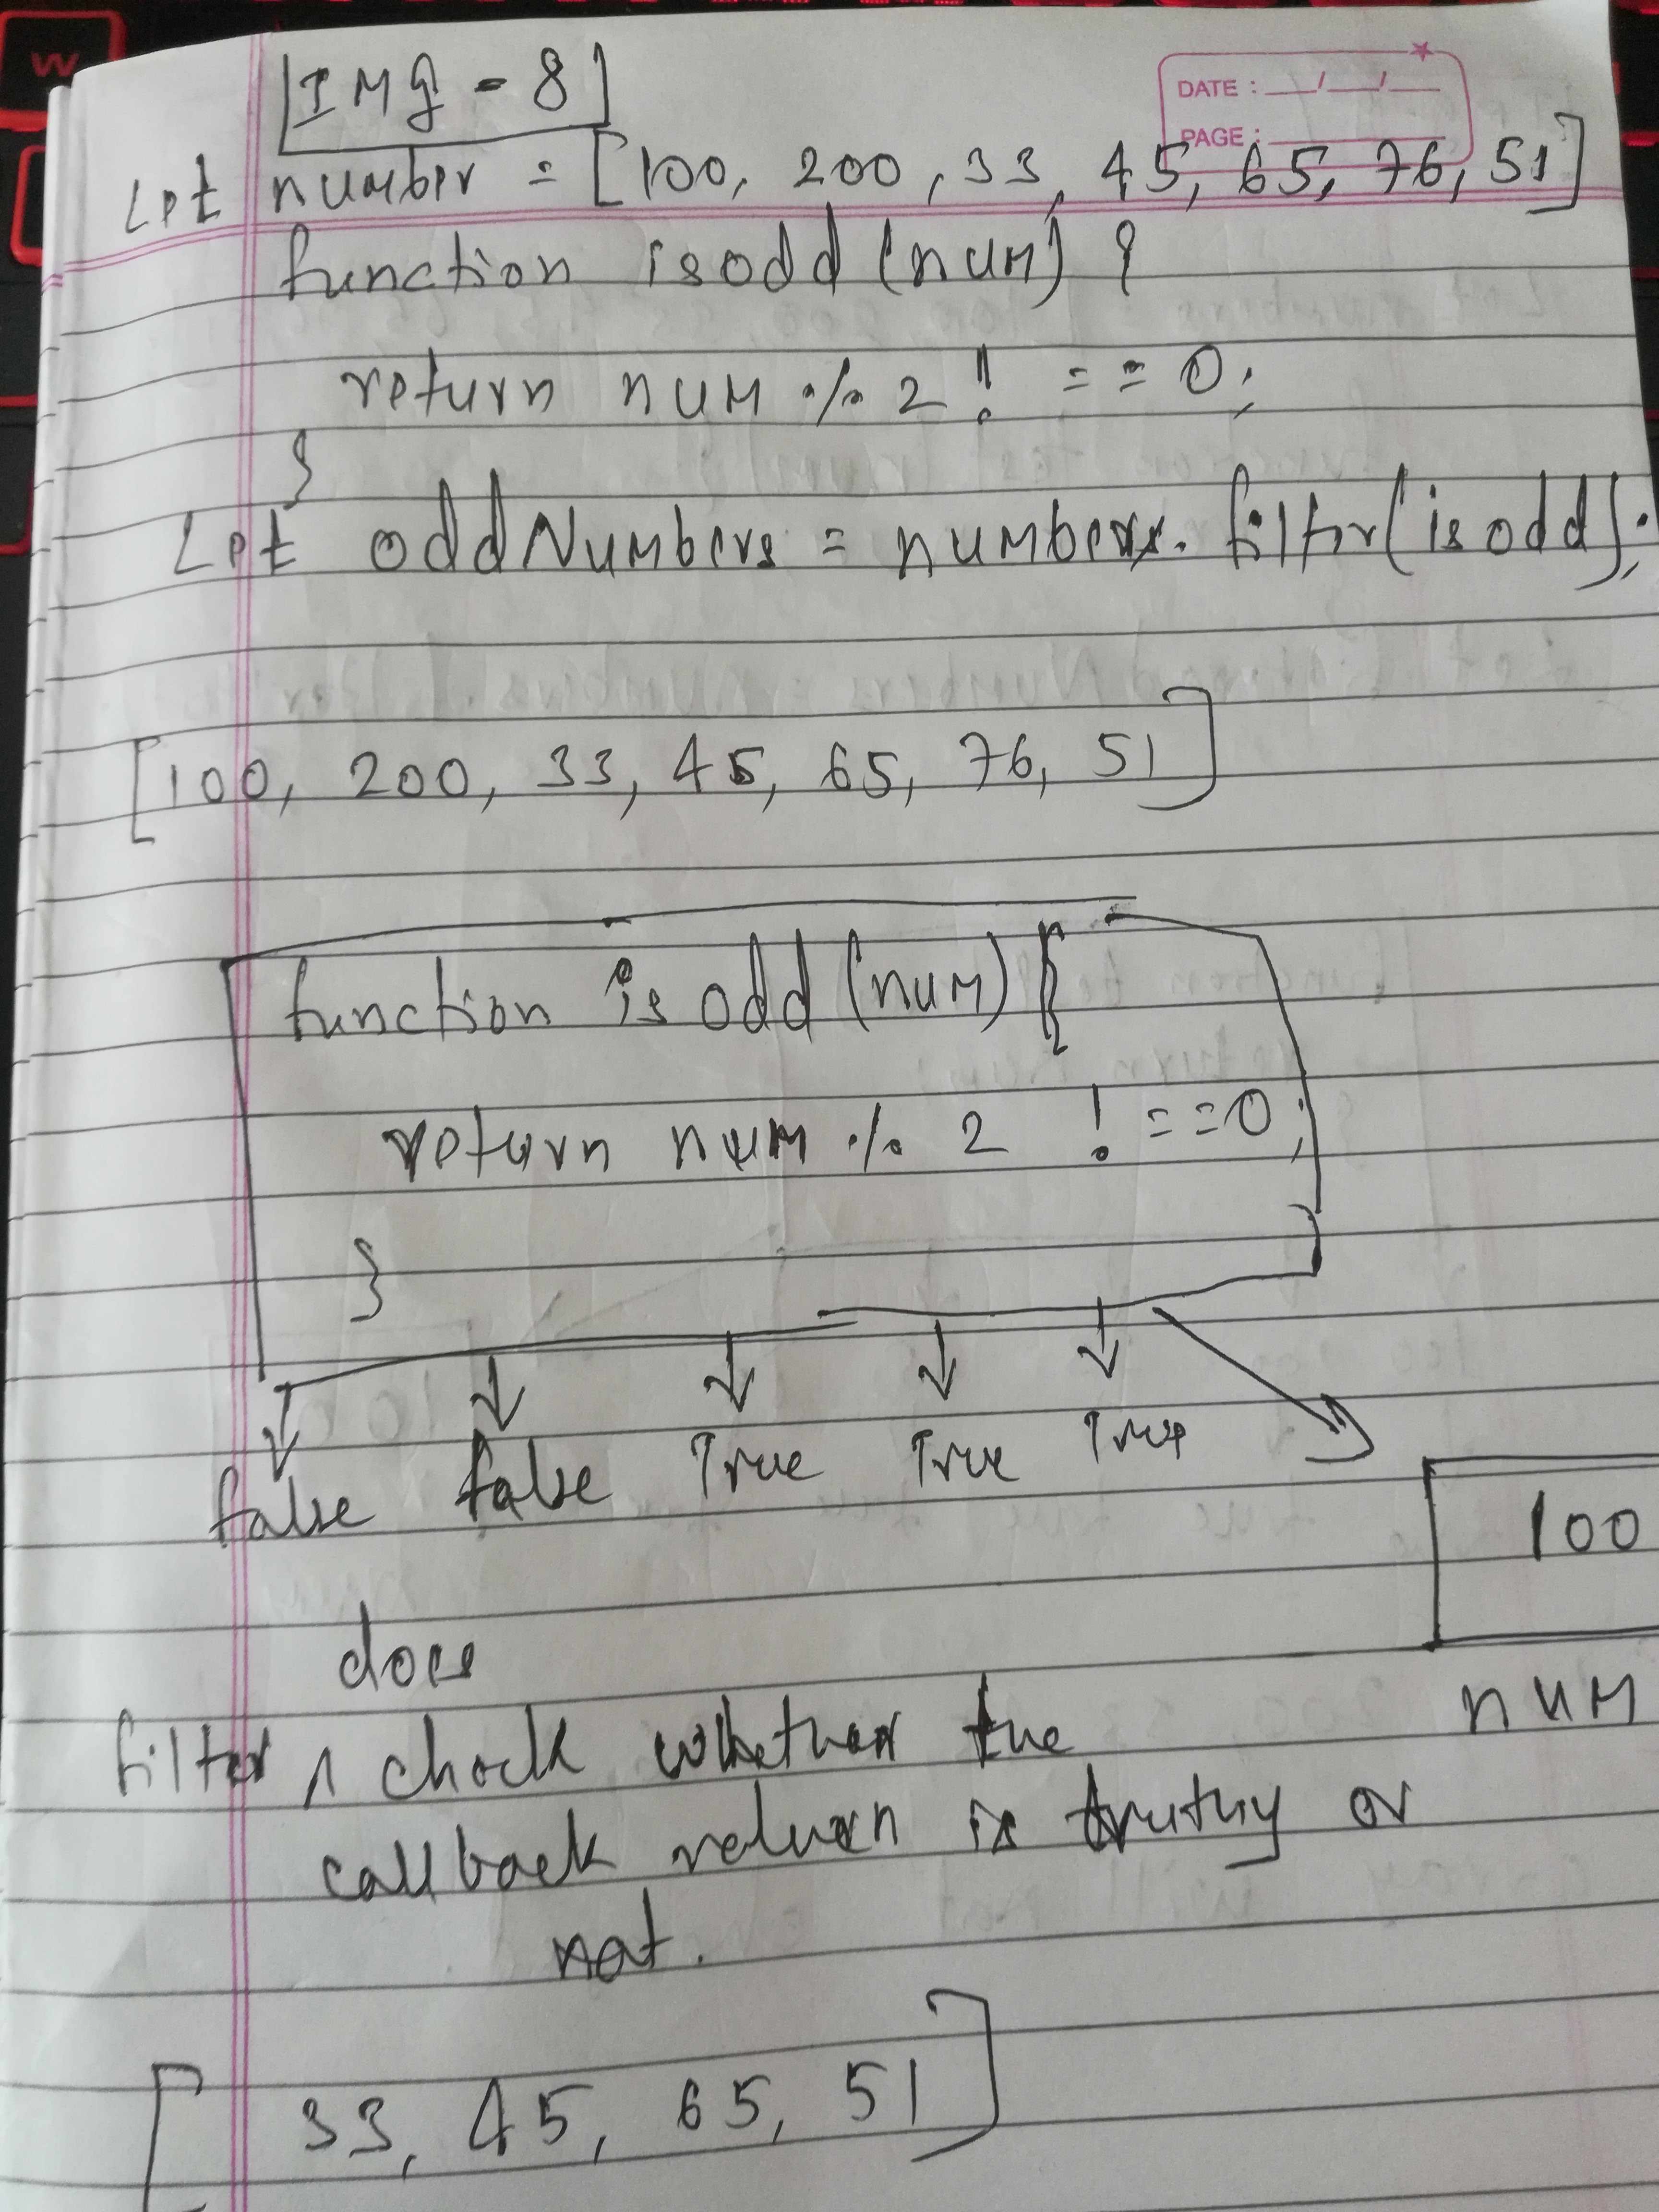 W
[IMG - 8]
DATE : __/__/__
PAGE : ______
Let number = [100, 200, 33, 45, 65, 76, 51]
function isodd (num) {
return num % 2 ! == 0;
}
Let oddNumbers = numbers. filter(is odd);
[100, 200, 33, 45, 65, 76, 51]
function is odd (num) {
return num % 2 ! == 0;
}
false false True True True
100
num
does
filter ^ check whether the
callback return is truthy or
not.
[33, 45, 65, 51]